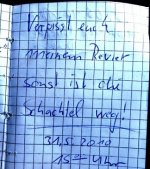 Verpisst euch
meinem Revier
sonst ist die
Schachtel weg!
31.5.2010
15 Uhr